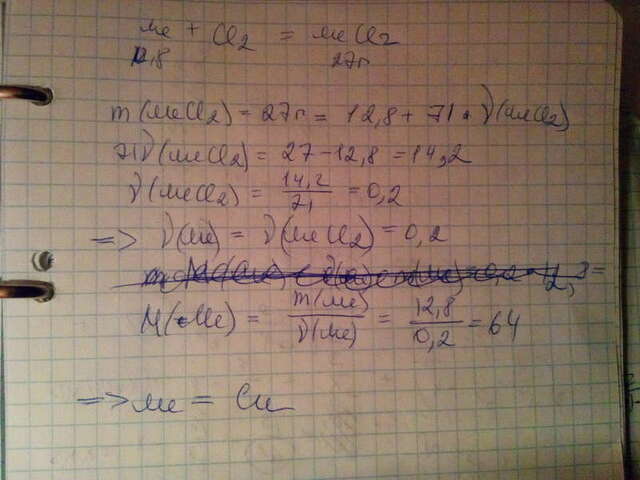 Me + Cl2 = MeCl2
12,8 27г
m(MeCl2) = 27г = 12,8 + 71 · ν(MeCl2)
71ν(MeCl2) = 27 - 12,8 = 14,2
ν(MeCl2) = 14,2/71 = 0,2
=> ν(Me) = ν(MeCl2) = 0,2
M(Me) = m(Me)/ν(Me) = 12,8/0,2 = 64
=> Me = Cu